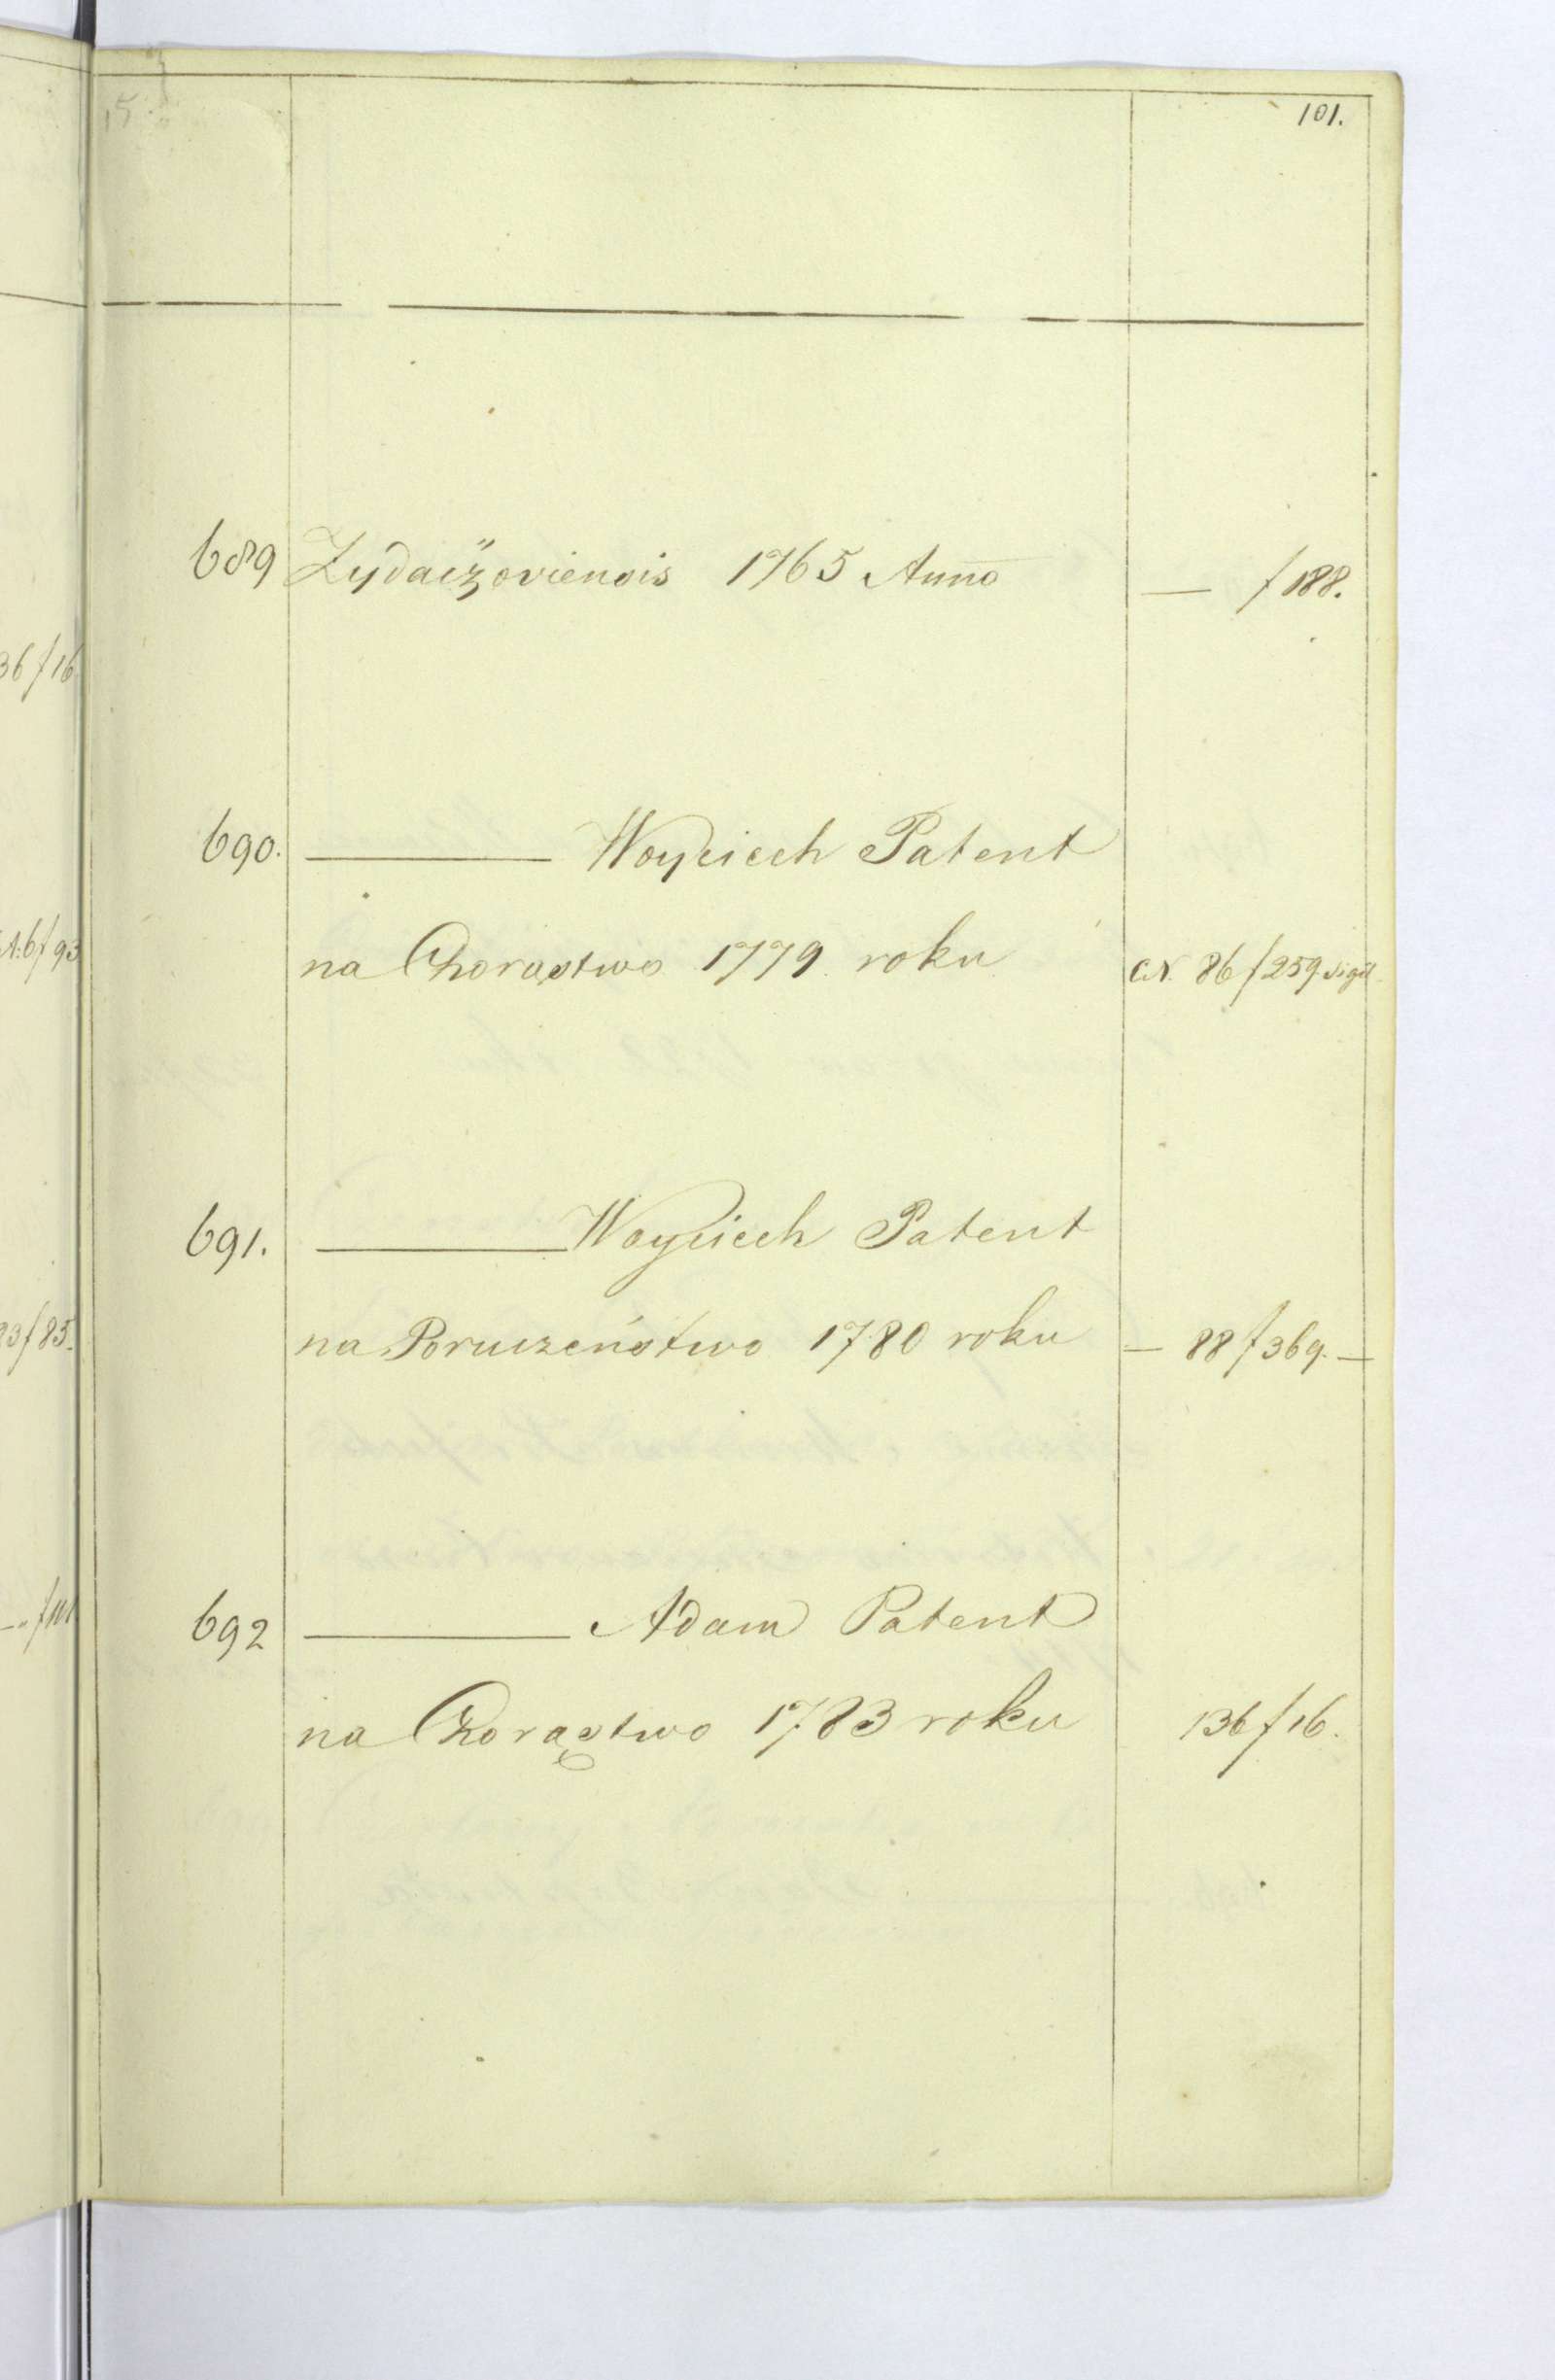 101.
689 Zydaczoviensis 1765 Anno — f 188.
690. ——— Woyciech Patent
na Chorąstwo 1779 roku CN. 86 f 259 sigil.
691. ——— Woyciech Patent
na Poruczeństwo 1780 roku — 88 f 369. —
692 ——— Adam Patent
na Chorąstwo 1783 roku 136 f 16.